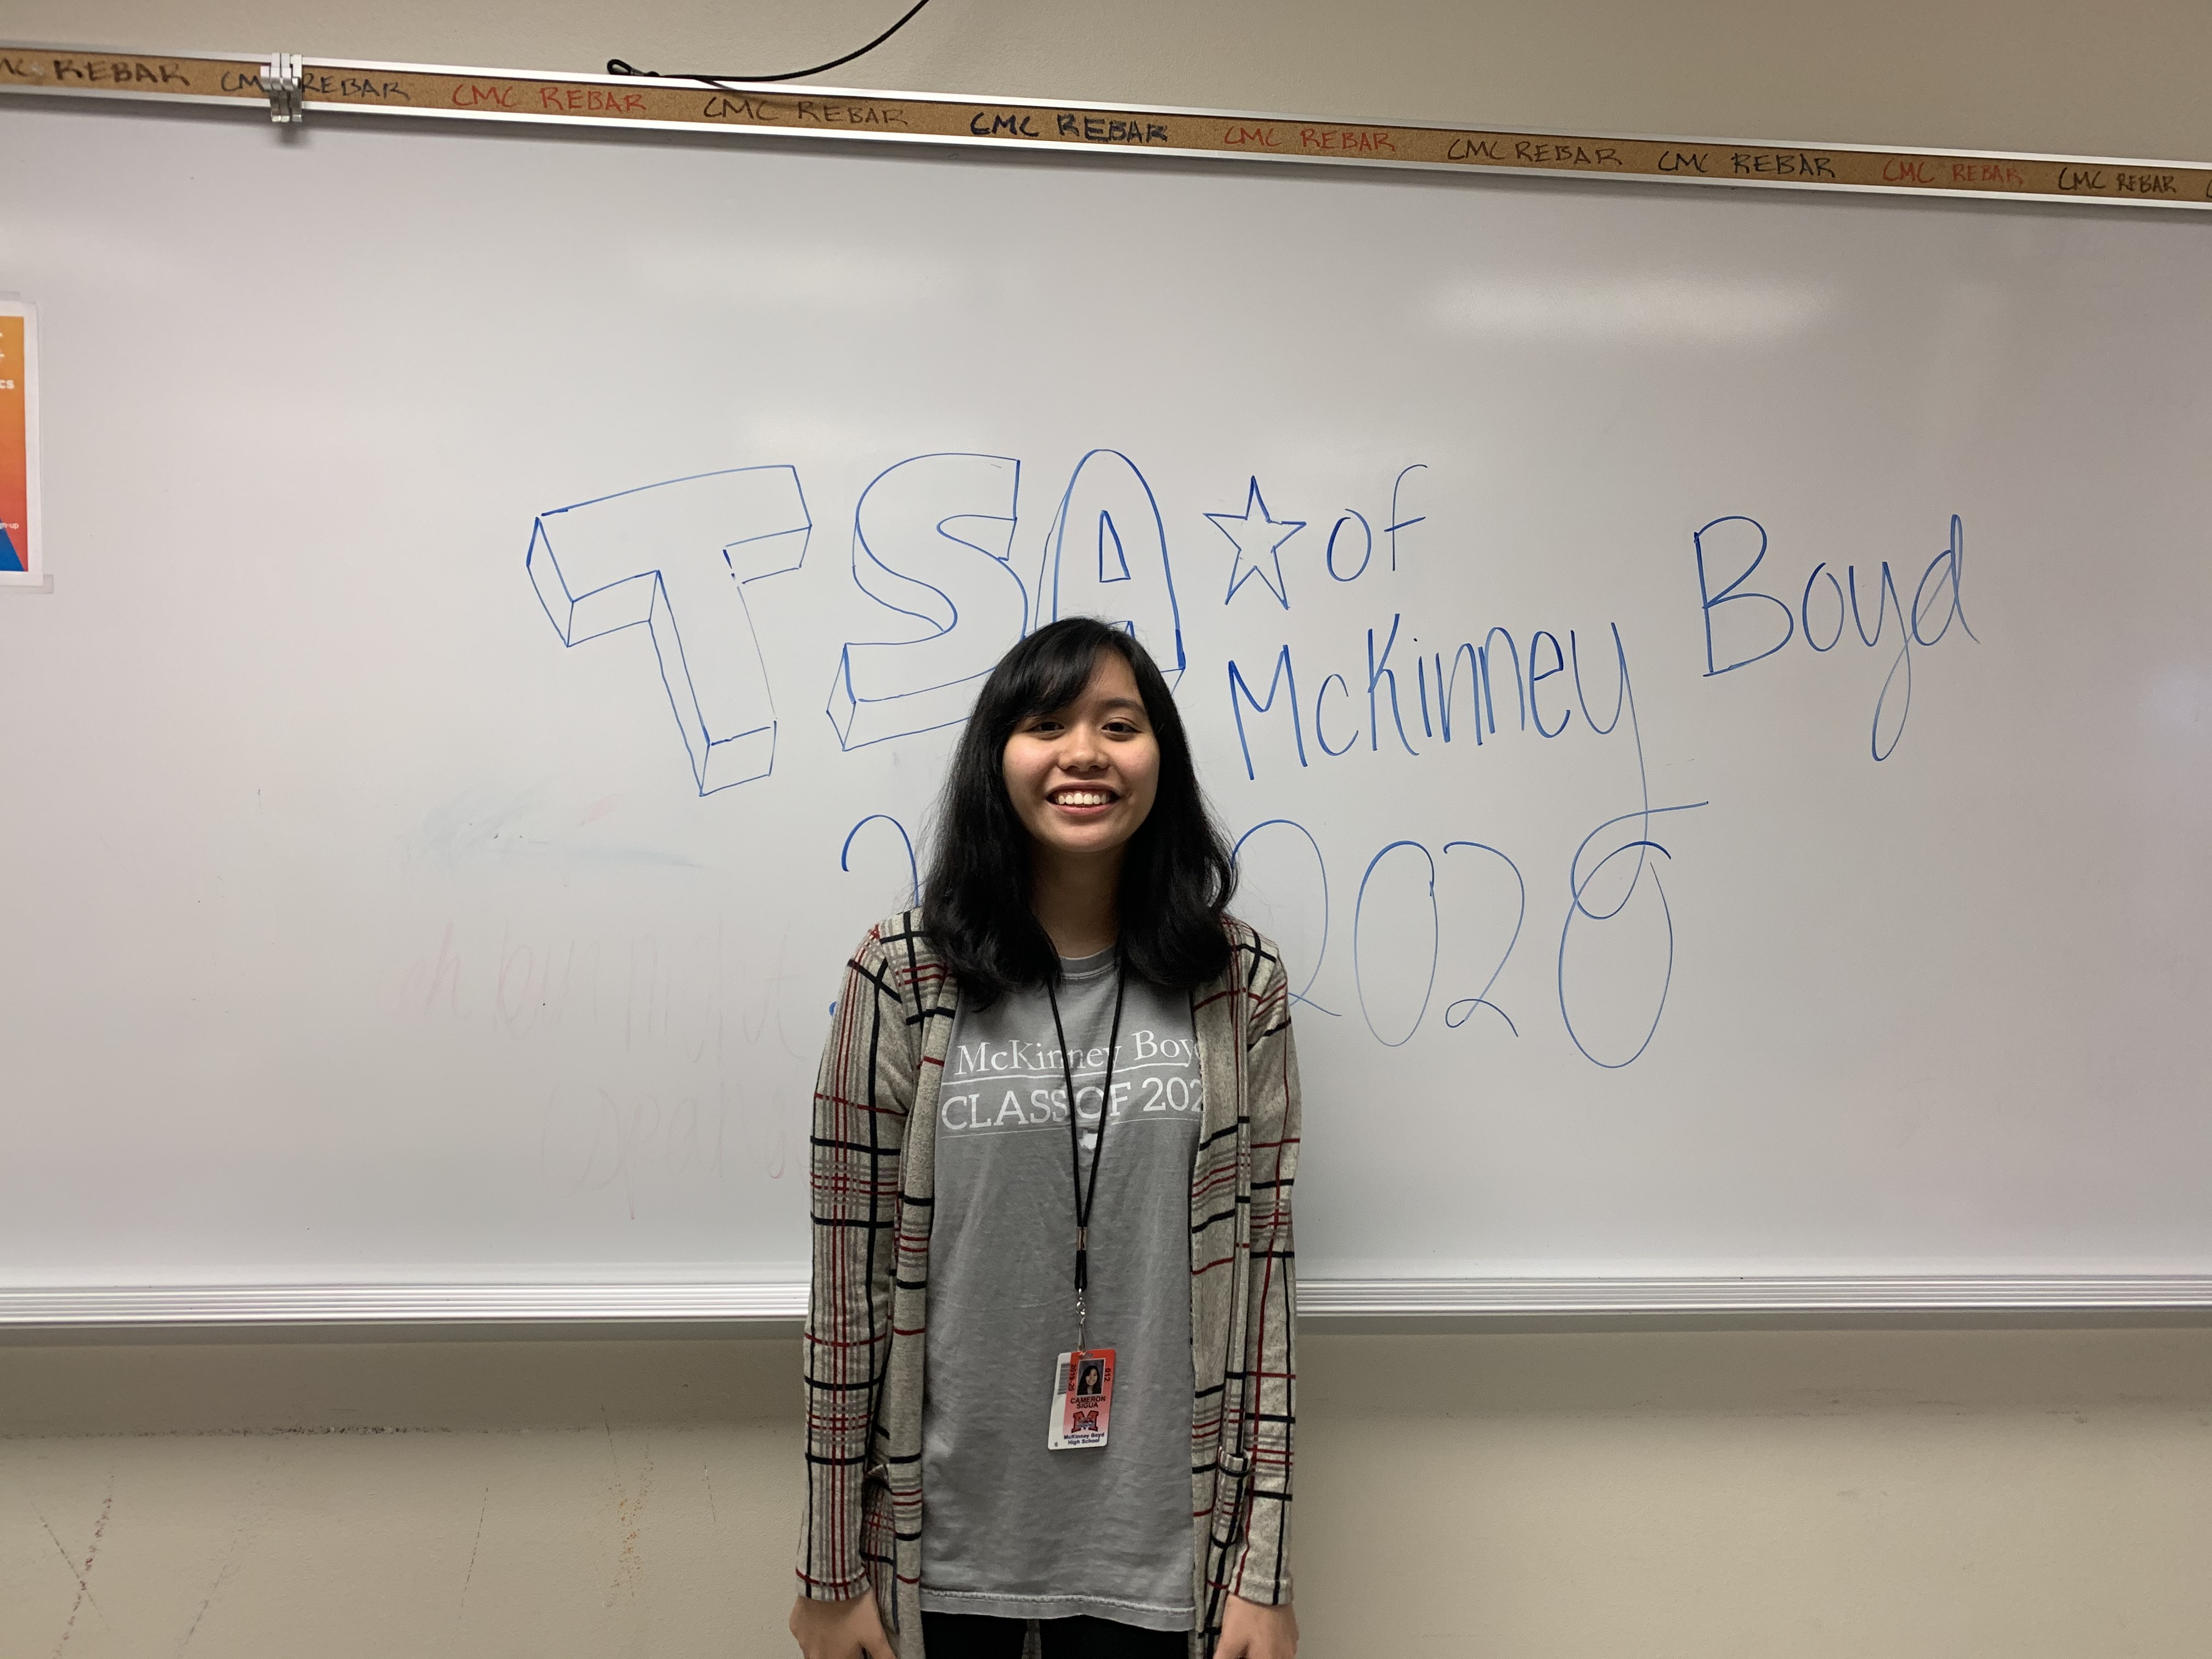 REBAR CMC REBAR CMC REBAR CMC REBAR CMC REBAR CMC REBAR CMC REBAR CMC REBAR CMC REBAR CMC REBAR
TSA ☆ of
McKinney Boyd
2020
McKinney Boy
CLASS OF 202
2019-20
012
CAMERON
SIGUA
M
McKinney Boyd
High School
6